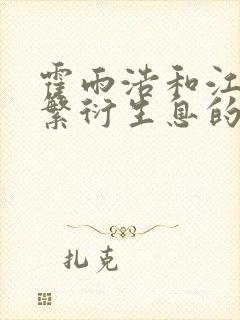 霍雨浩和江
繁衍生息的
扎克